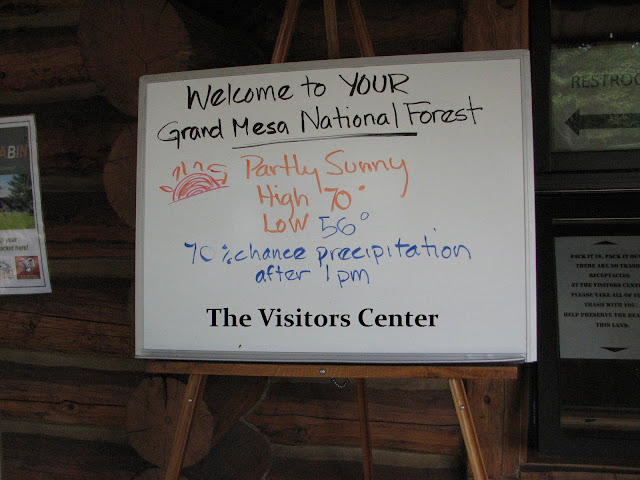 Welcome to YOUR
Grand Mesa National Forest
Partly Sunny
High 70°
Low 56°
70% chance precipitation
after 1pm
The Visitors Center
RESTROO
PACK IT IN, PACK IT OU
THERE ARE NO TRASH
RECEPTACLES
AT THE VISITORS CENT
PLEASE TAKE ALL OF
TRASH WITH YOU
HELP PRESERVE THE BEA
THIS LAND.